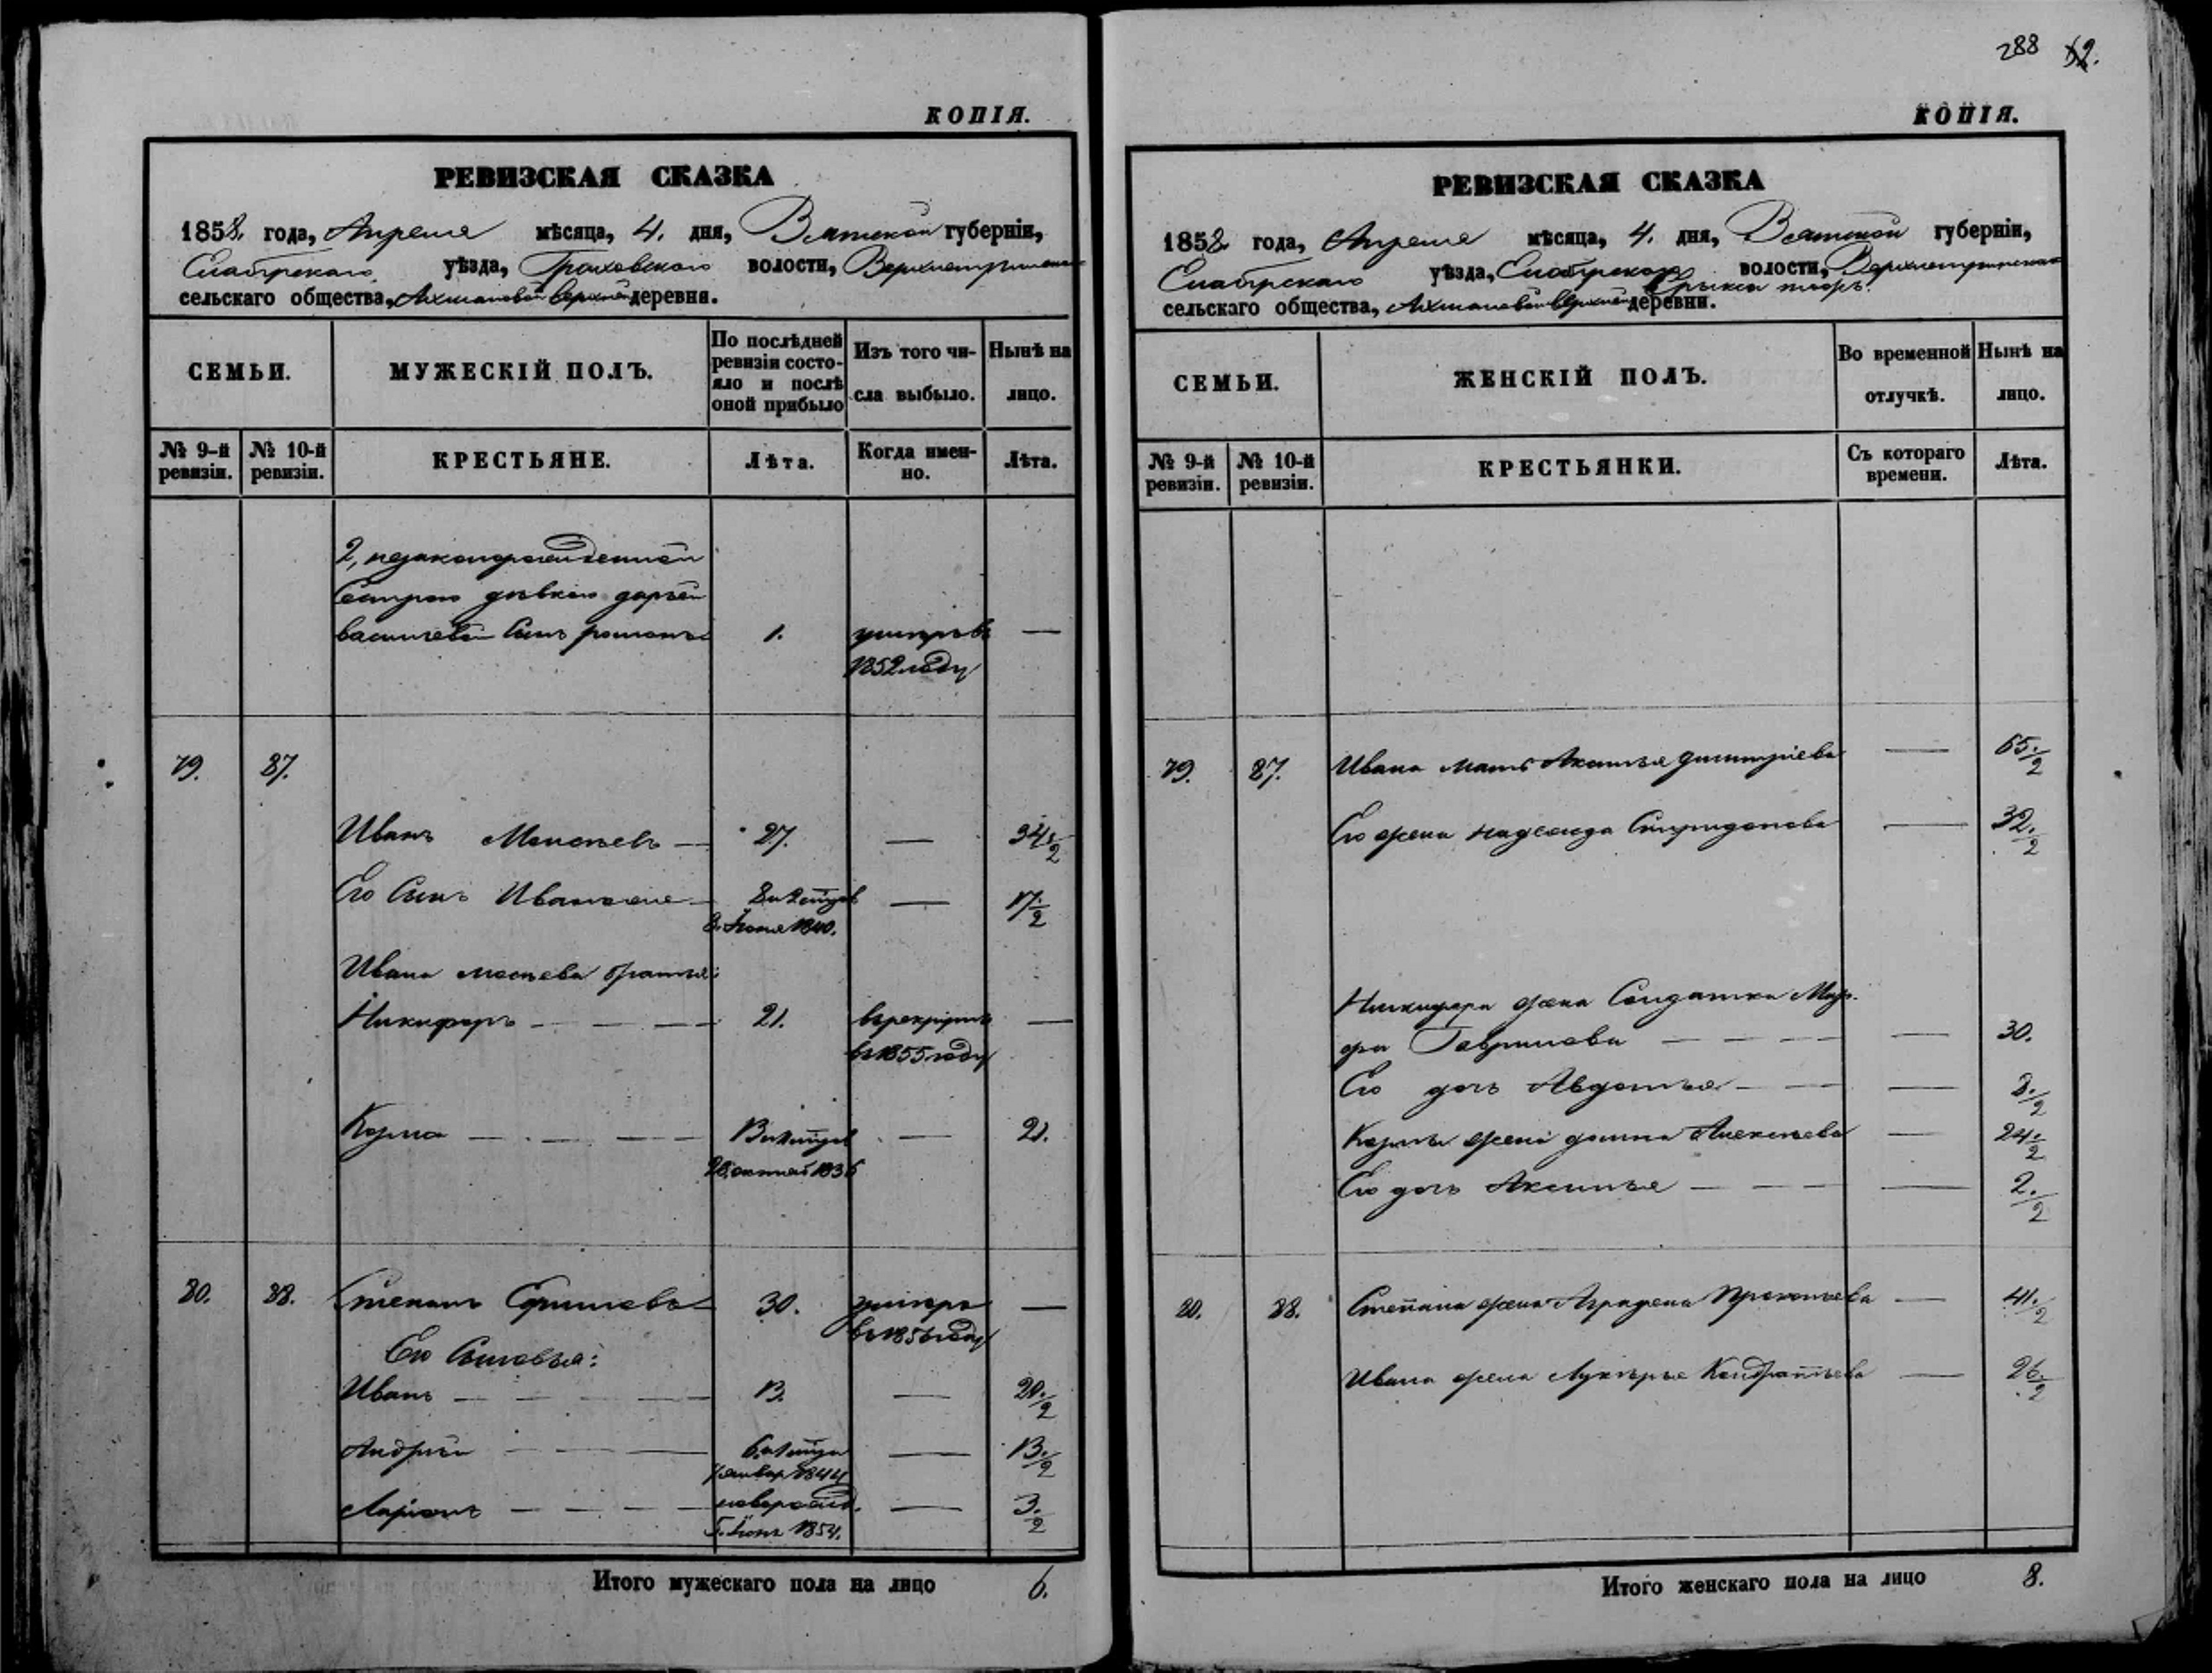 КОПІЯ.
РЕВИЗСКАЯ СКАЗКА
1858. года, Апреля мѣсяца, 4. дня, Вятской губерніи,
уѣзда, Граховской волости,
сельскаго общества, деревни.
СЕМЬИ.
МУЖЕСКІЙ ПОЛЪ.
По послѣдней
ревизіи состо-
яло и послѣ
оной прибыло
Изъ того чи-
сла выбыло.
Нынѣ на
лицо.
№ 9-й
ревизіи.
№ 10-й
ревизіи.
КРЕСТЬЯНЕ.
Лѣта.
Когда имен-
но.
Лѣта.
2, незаконорожденной
Сестрою дѣвкою дарьей
васильевой Сынъ романъ 1. умеръ въ —
1852 году
79. 87.
Иванъ Моисѣевъ — 27. — 34 1/2
Его Сынъ Иванъ же — —17 1/2
8. Іюня 1840.
Ивана мосѣева братья:
Никифоръ — — — 21. въ рекруты —
въ 1855 году
Козма — — — — 21.
80. 88. Степанъ 30. умеръ —
въ 1856 году
Его Сыновья:
Иванъ — — — — 13. — 20. 1/2
Андрей — — — 13. 1/2
январ 1844
Ларіонъ — — — — новорожд. — 3. 1/2
Іюн 1854.
Итого мужескаго пола на лицо 6.
288
КОПІЯ.
РЕВИЗСКАЯ СКАЗКА
1858 года, Апреля мѣсяца, 4. дня, Вятской губерніи,
уѣзда, волости,
сельскаго общества, деревни.
СЕМЬИ.
ЖЕНСКІЙ ПОЛЪ.
Во временной
отлучкѣ.
Нынѣ на
лицо.
№ 9-й
ревизіи.
№ 10-й
ревизіи.
КРЕСТЬЯНКИ.
Съ котораго
времени.
Лѣта.
79. 87. Ивана мать димитріева — 65. 1/2
Его жена надежда Спиридонова — 32. 1/2
Никифора жена Солдатка Мар-
фа Гаврилова — — — — 30.
Его дочь Авдотья — — — 8. 1/2
Козмы жена домна Алексѣева — 24. 1/2
Его дочь Аксинья — — — — 2. 1/2
80. 88. Степана жена Аграфена Прокопьева — 41. 1/2
Ивана жена Лукерья Кондратьева — 26. 1/2
Итого женскаго пола на лицо 8.